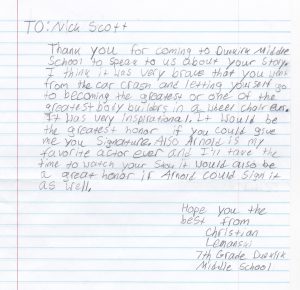 TO: Nick Scott
Thank you for coming to Dunkirk Middle
School to speak to us about your story.
I think it was very brave that you went
from the car crash and letting yourself go
to becoming the greatest or one of the
greatest body builders in a wheel chair ever.
It was very inspirational. It would be
the greatest honor if you could give
me you signature. Also Arnold is my
favorite actor ever and I'll take the
time to watch your show it would also be
a great honor if Arnold could sign it
as well.
Hope you the
best from
Christian
Lemanski
7th Grade Dunkirk
Middle School